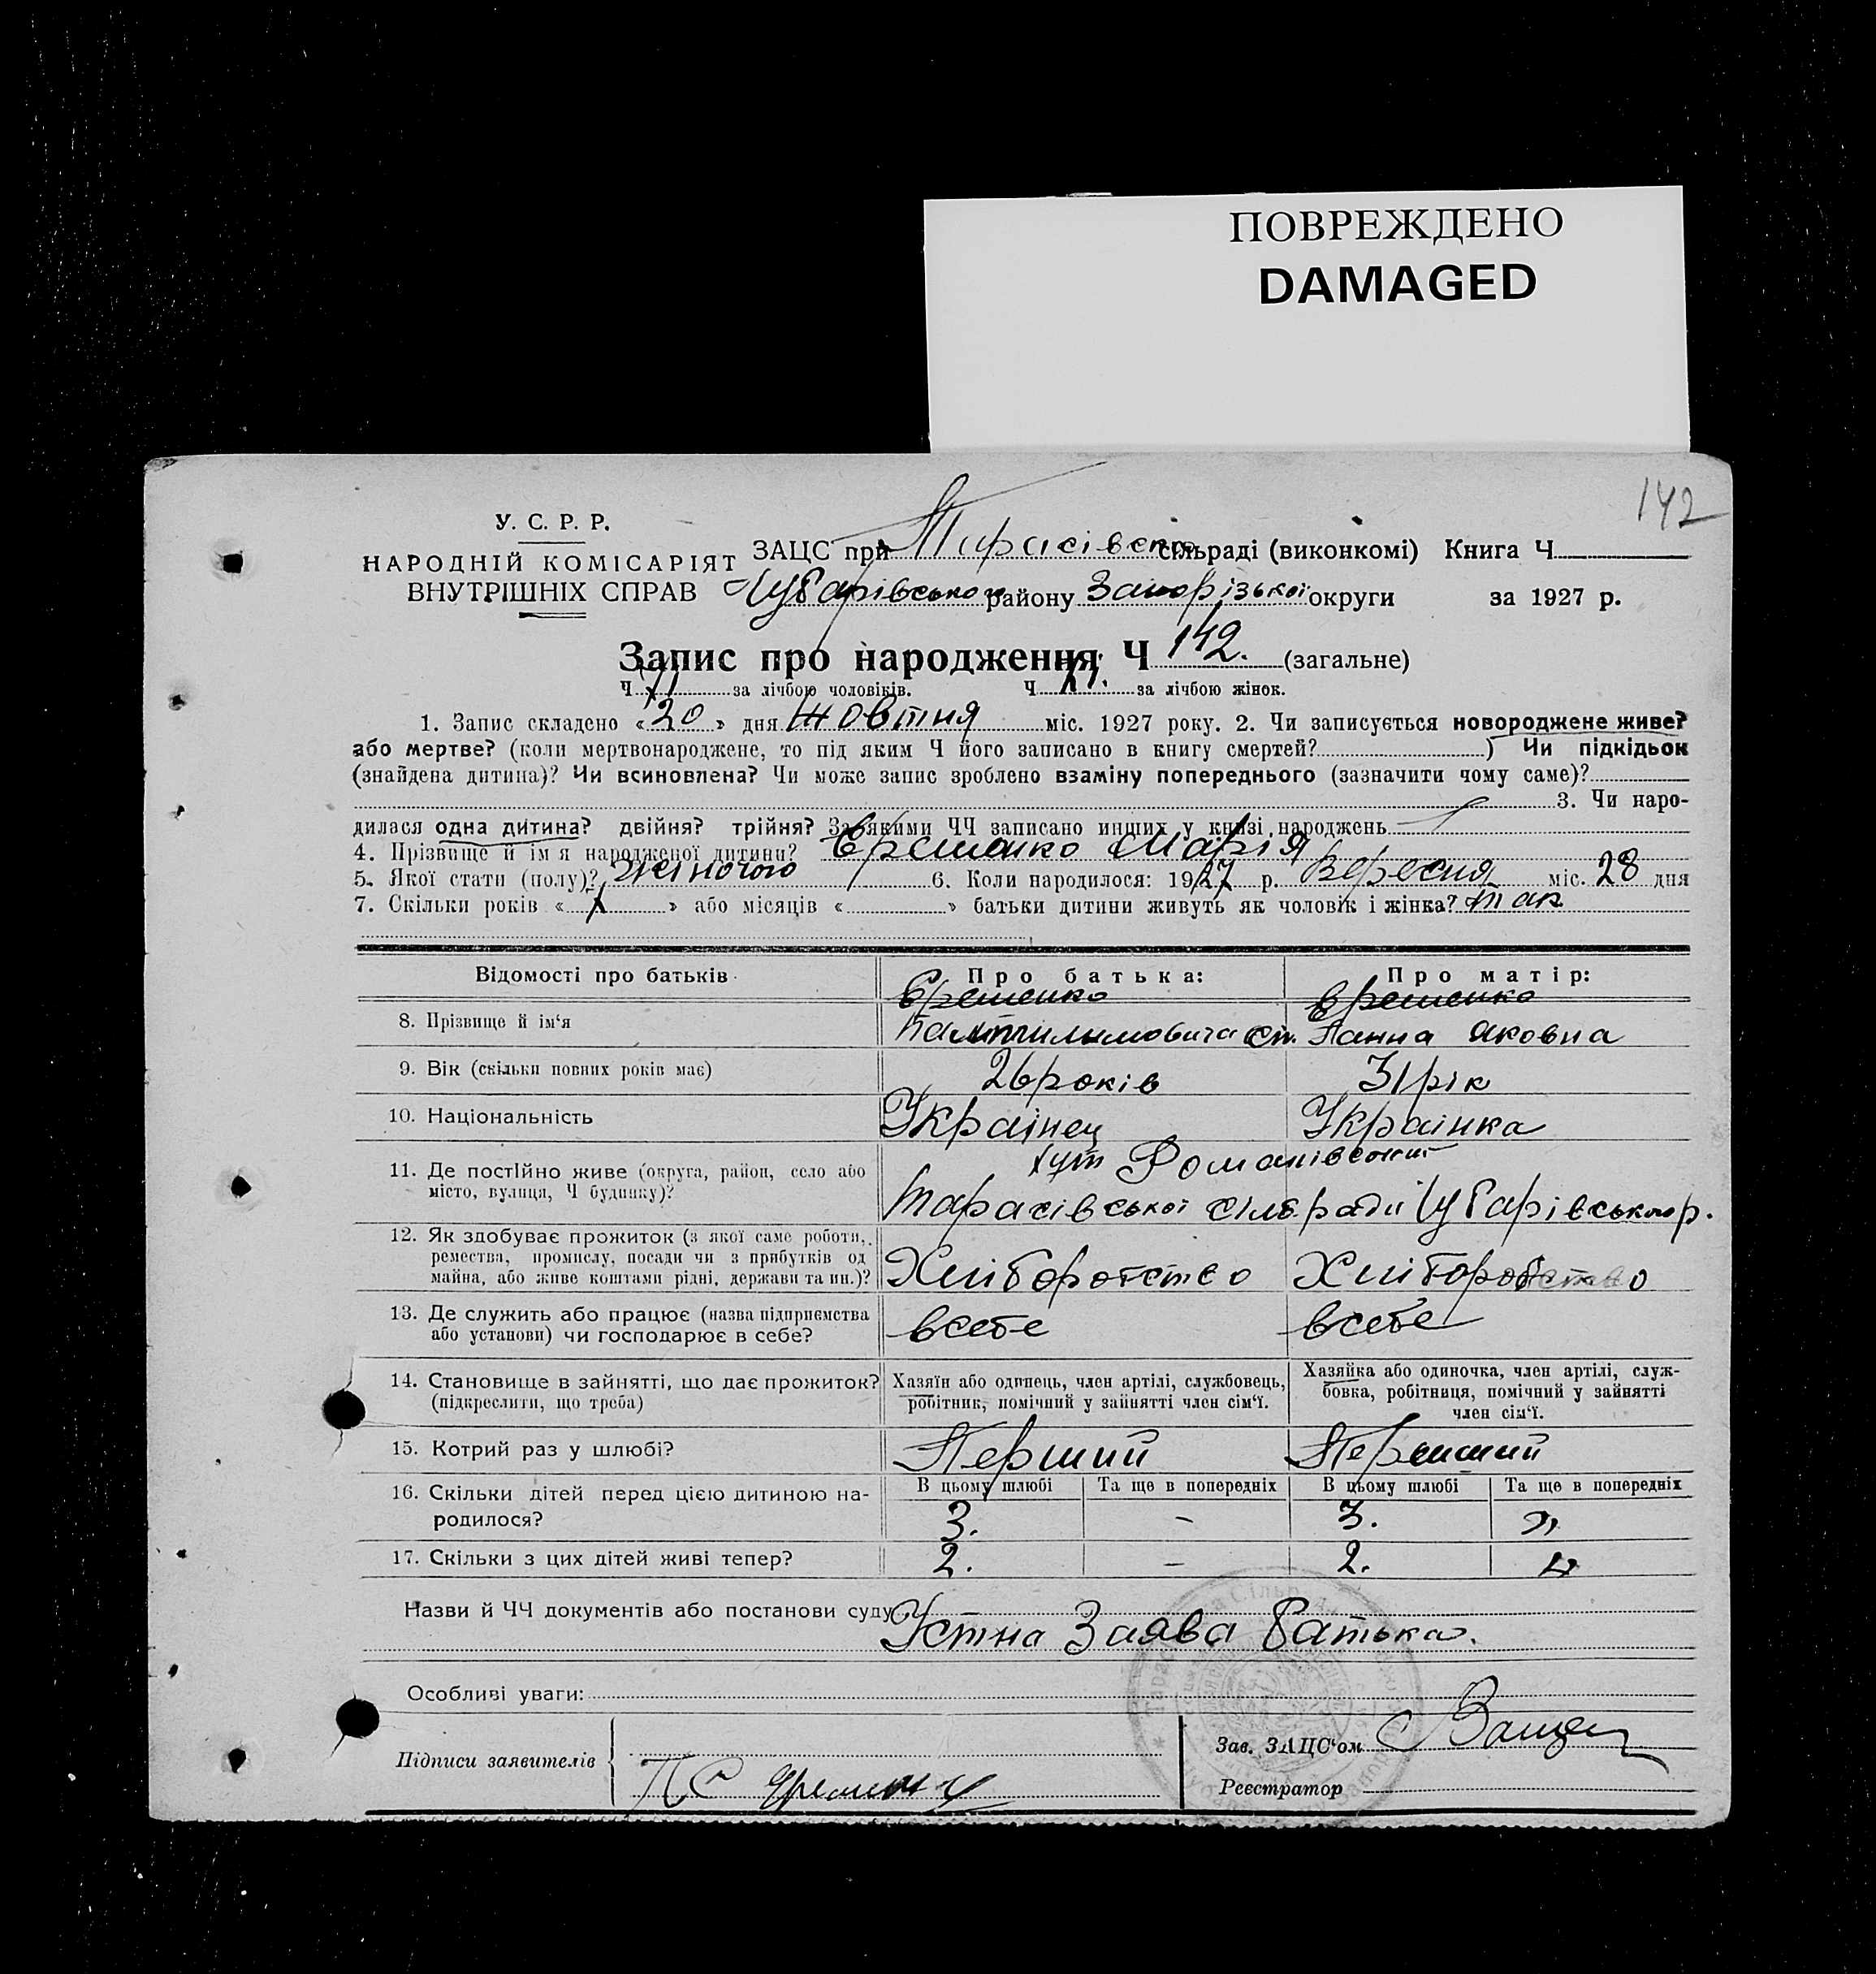 ПОВРЕЖДЕНО
DAMAGED
142
У. С. Р. Р.
НАРОДНІЙ КОМІСАРІЯТ
ВНУТРІШНІХ СПРАВ
ЗАЦС при Тарасівска сільраді (виконкомі) Книга Ч
Чубарівського району Запорізької округи за 1927 р.
Запис про народження Ч 142. (загальне)
Ч 71 за лічбою чоловіків. Ч 71. за лічбою жінок.
1. Запис складено «20» дня Жовтня міс. 1927 року. 2. Чи записується новороджене живе?
або мертве? (коли мертвонароджене, то під яким Ч його записано в книгу смертей?) Чи підкідьок
(знайдена дитина)? Чи всиновлена? Чи може запис зроблено взаміну попереднього (зазначити чому саме)?
3. Чи наро-
дилася одна дитина? двійня? трійня? За якими ЧЧ записано инших у книзі народжень
4. Прізвище й ім'я народженої дитини? Єременко Марія
5. Якої стати (полу)? жіночого 6. Коли народилося: 1927 р. Вересня міс. 28 дня
7. Скільки років « » або місяців « » батьки дитини живуть як чоловік і жінка? так
Відомості про батьків Про батька: Про матір:
8. Прізвище й ім'я Єременко Єременко
Ганна Яковна
9. Вік (скільки повних років має) 26 років 31 рік
10. Національність Українец Українка
11. Де постійно живе (округа, район, село або
місто, вулиця, Ч будинку)?
хут Романівський
Тарасівської сільради Чубарівськ р.
12. Як здобуває прожиток (з якої саме роботи,
ремества, промислу, посади чи з прибутків од
майна, або живе коштами рідні, держави та ин.)? Хліборобство Хліборобство
13. Де служить або працює (назва підприємства
або установи) чи господарює в себе? всебе всебе
14. Становище в зайнятті, що дає прожиток?
(підкреслити, що треба)
Хазяїн або одинець, член артілі, службовець,
робітник, помічний у зайнятті член сім'ї.
Хазяйка або одиночка, член артілі, служ-
бовка, робітниця, помічний у зайнятті
член сім'ї.
15. Котрий раз у шлюбі? Перший Перший
16. Скільки дітей перед цією дитиною на-
родилося?
В цьому шлюбі Та ще в попередніх В цьому шлюбі Та ще в попередніх
3. - 3. "
17. Скільки з цих дітей живі тепер? 2. - 2. "
Назви й ЧЧ документів або постанови суду Устна Заява батька.
Особливі уваги:
Підписи заявителів
Зав. ЗАЦС'ом
Реєстратор